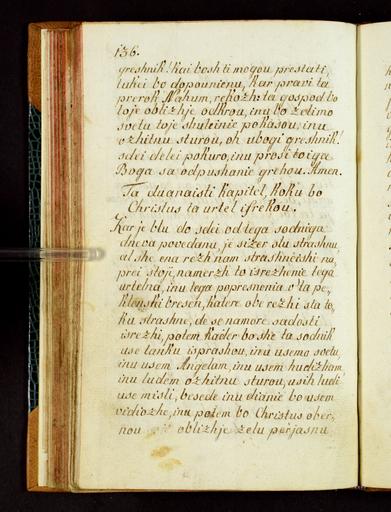 136.
greshnik! kai bosh ti mogou prestati,
tukei bo dopounienu, kar pravi ta
prerok Nahum, rekozh: ta gospod bo
toje oblizhje odkrou, inu bo zelimo
svetu toje shutinie pokasou, inu
ozhitnu sturou, oh ubogi greshnik!
sdei delei pokuro, inu prosi toiga
Boga sa odpushanie grehou. Amen.
Ta duanaisti kapitel, koku bo
Christus ta urtel isrekou.
Kar je blu do sdei od tega sodniga
dneva povedanu, je sizer slu strashnu,
al she ena rezh nam strashneishi na,
prei stoji, namerzh to isrezhenie tega
urtelna, inu tega popresnenia v ta pe,
klenski bresen, katere obe rezhi sta ta,
ku strashne, de se namore sadosti
isrezhi, potem kader bo she ta sodnik
use tanku isprashou, inu usemo svetu,
inu usem Angelam, inu usem hudizham
inu ludem ozhitnu sturou, usih ludi
use misli, besede inu dianie bo usem
vidiozhe, inu potem bo Christus ober,
nou oblizhje zelu perjasnu